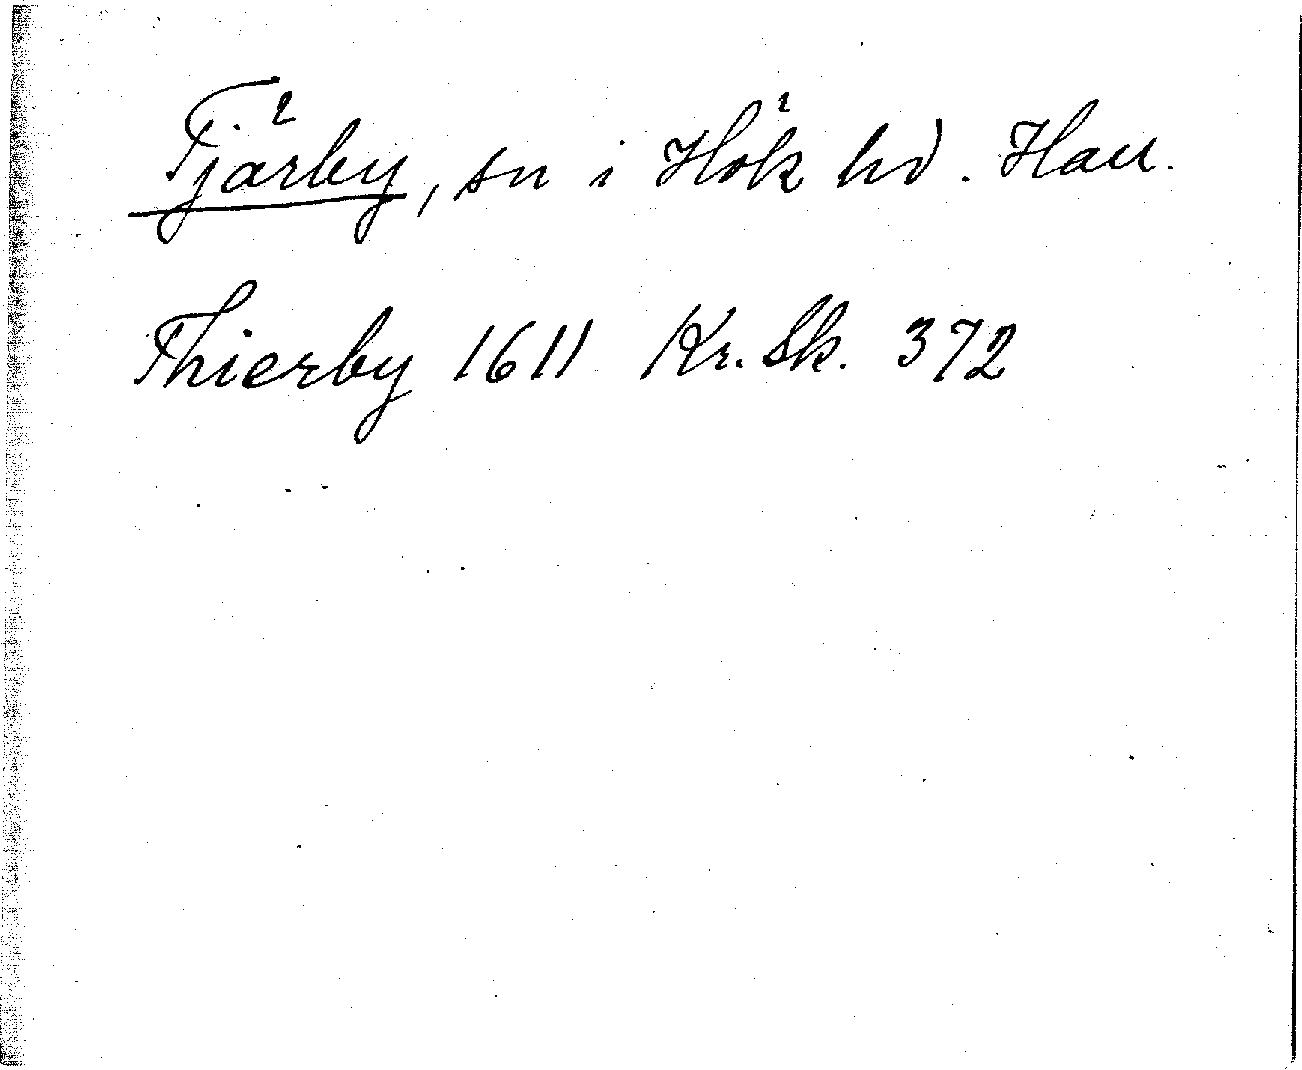 Tjärby, sn i Hök hd. Hall.
Thierby 1611 Kr. Sk. 372